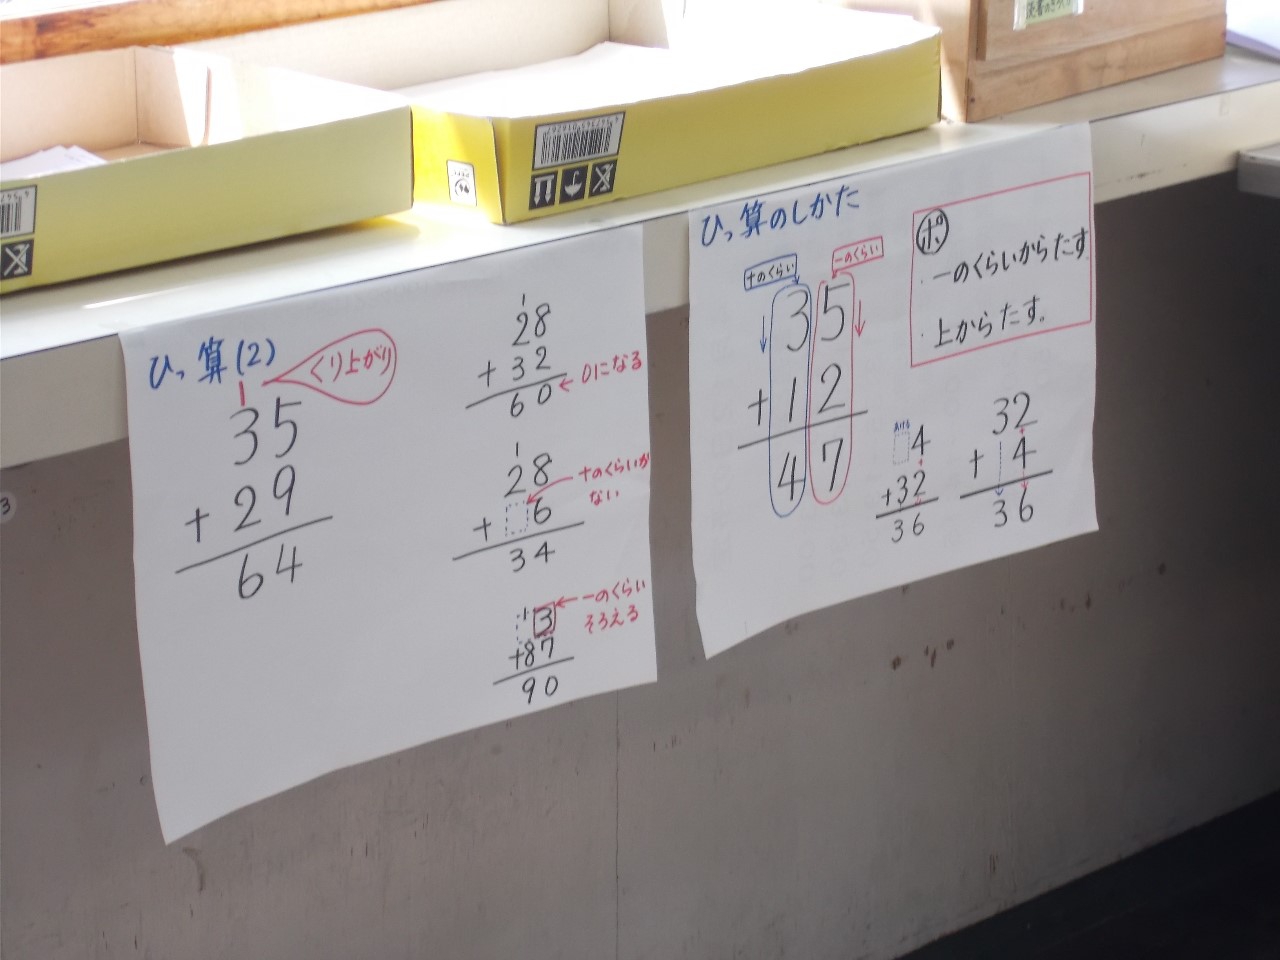 ひっ算(2)
くり上がり
1
35
+29
64
1
28
+32
60
←0になる
1
28
+ 6
34
←十のくらいが
ない
1
3
+87
90
←一のくらい
そろえる
ひっ算のしかた
十のくらい
一のくらい
35
+12
47
ポ
・一のくらいからたす
・上からたす。
あける
4
+32
36
32
+ 4
36
3